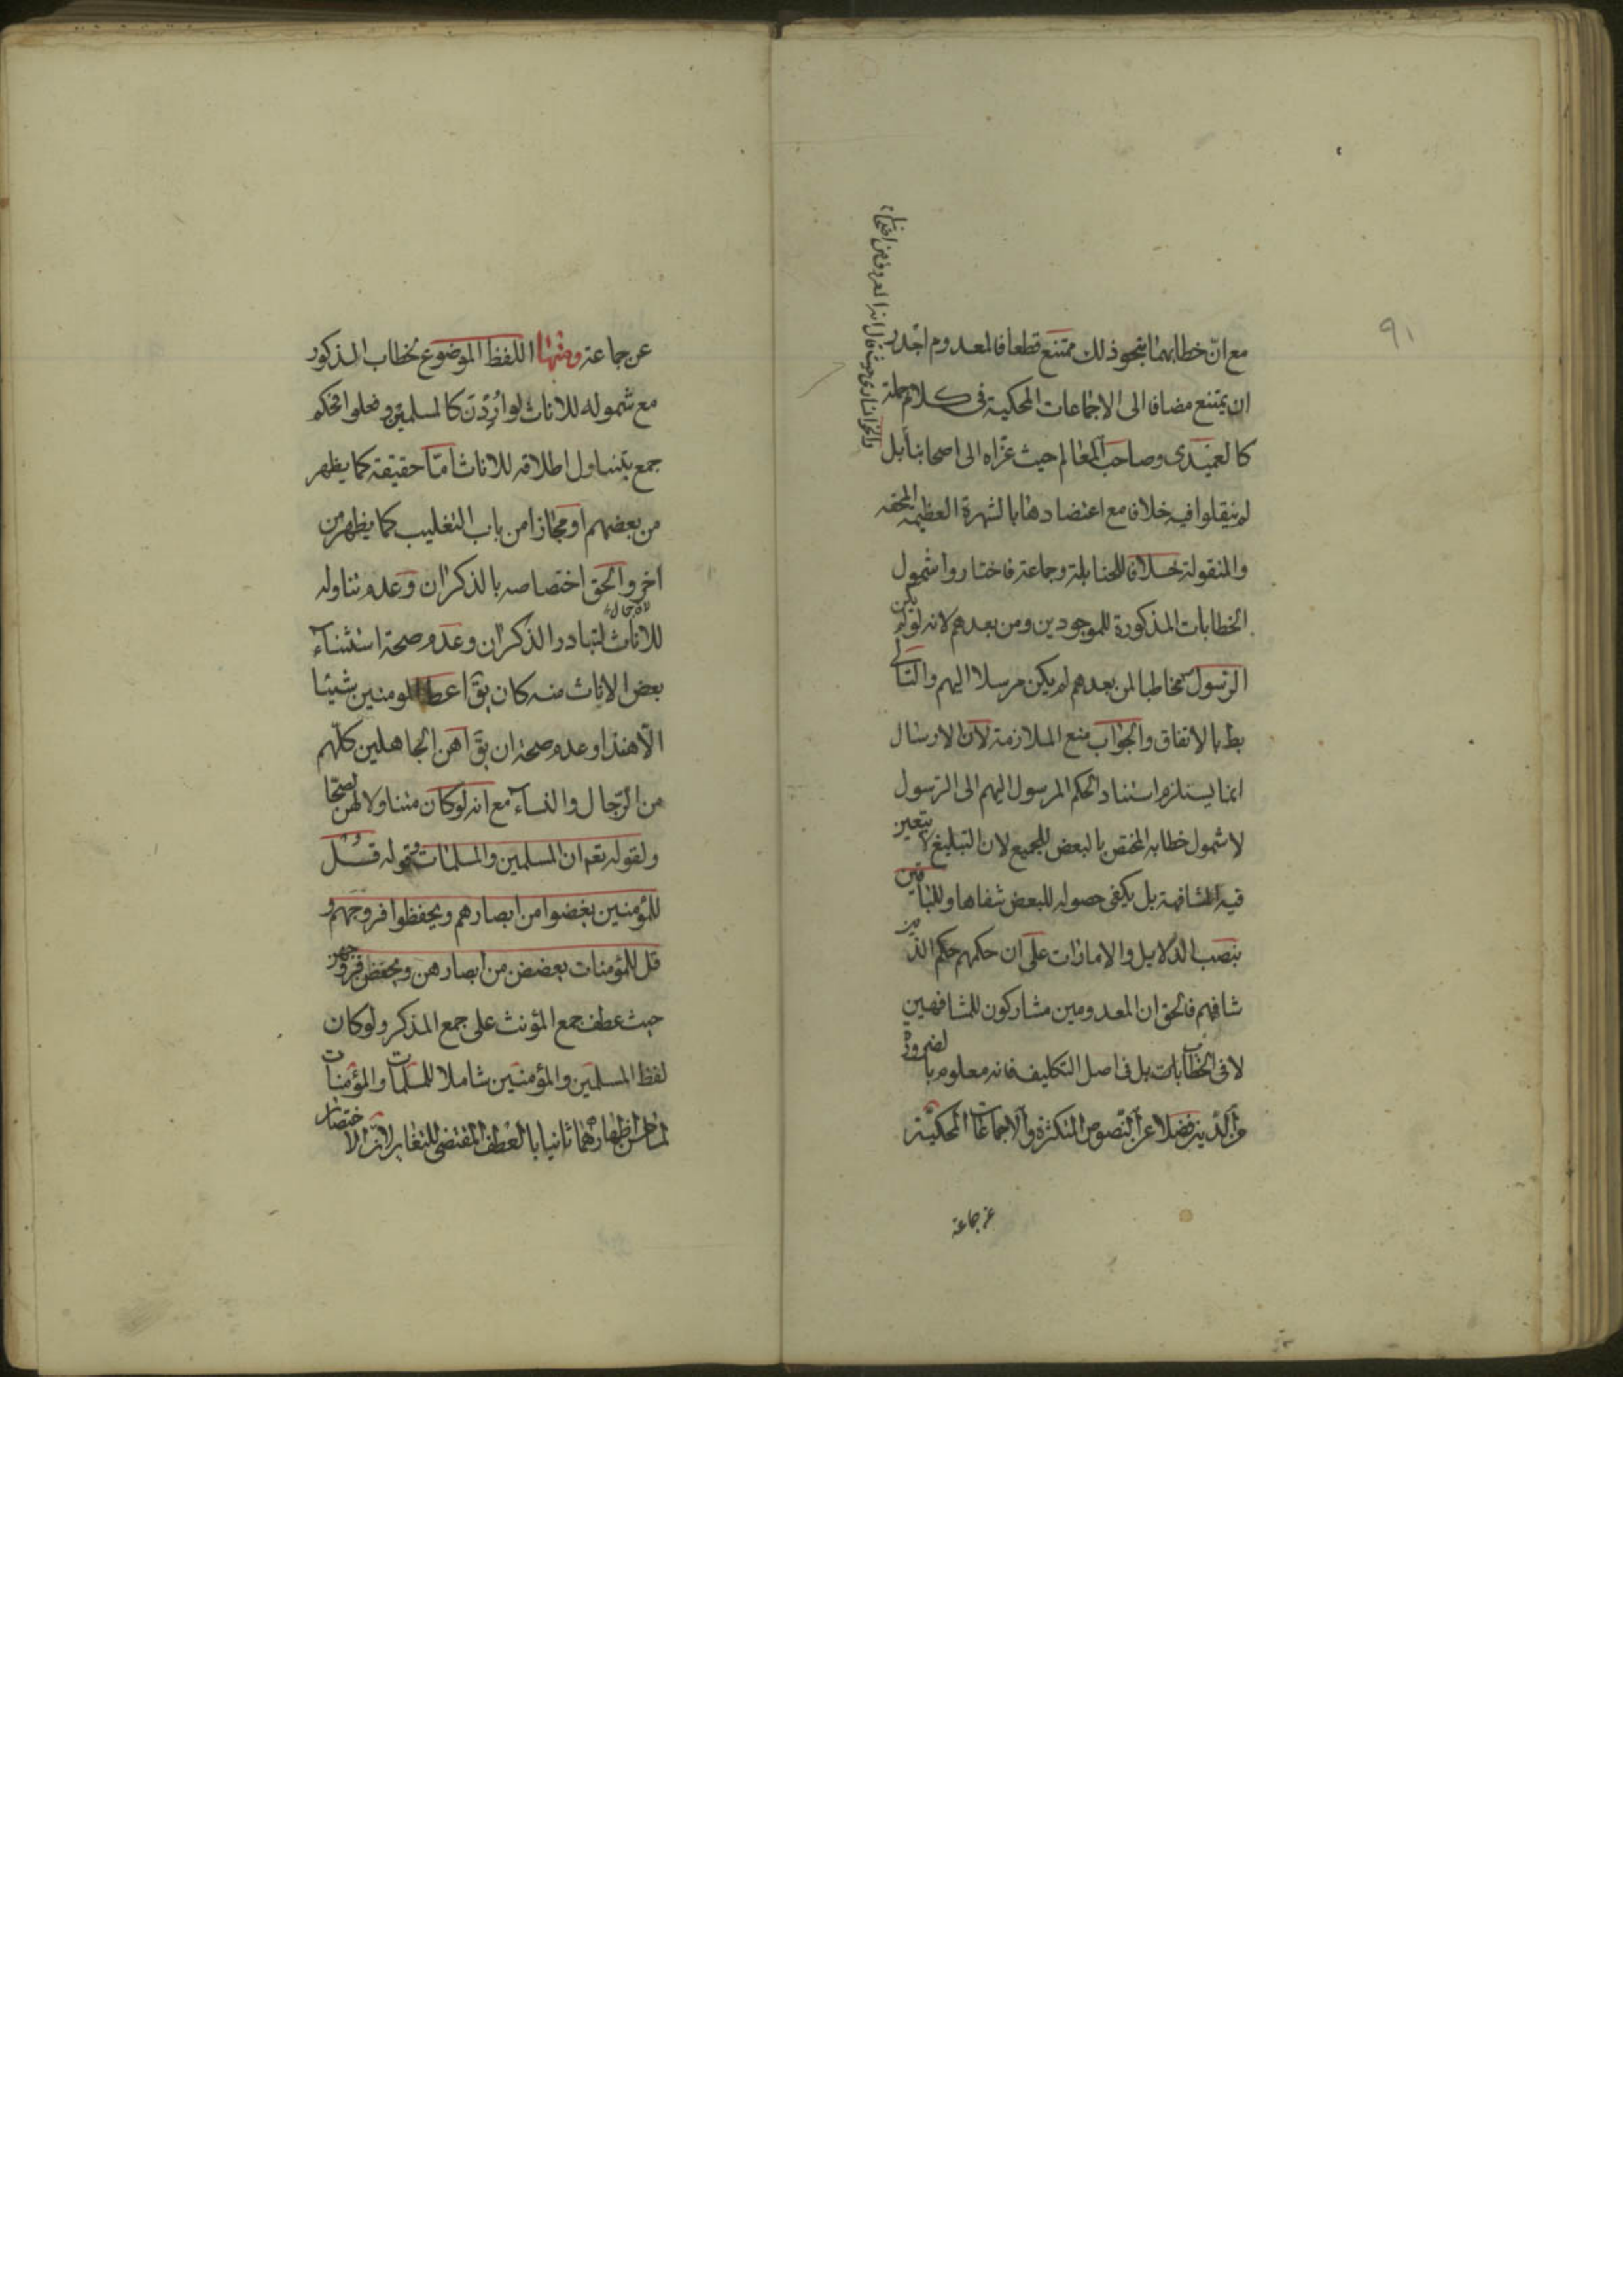 ٩١
مع ان خطابهما بنحو ذلك ممتنع قطعا فالمعدوم اجدر
ان يمتنع مضافا الى الاجماعات المحكية فى كلام جملة
كالعميدى وصاحب المعالم حيث عزاه الى اصحابنا بل
لم ينقلوا فيه خلافا مع اعتضادها بالشهرة العظيمة المحققه
والمنقولة خلافا للحنابلة وجماعة فاختاروا شمول
الخطابات المذكورة للموجودين ومن بعدهم لانه لو لم يكن
الرسول مخاطبا لمن بعدهم لم يكن مرسلا اليهم والتالى
بط بالاتفاق والجواب منع الملازمة لان الارسال
انما يستلزم استناد الحكم المرسول اليهم الى الرسول
لا شمول خطابه المختص بالبعض للجميع لان التبليغ لا يتعين
فيه المشافهة بل يكفى حصوله للبعض شفاها وللباقين
بنصب الدلايل والامارات على ان حكمهم حكم الذين
شافههم فالحق ان المعدومين مشاركون للمشافهين
لا فى الخطابات بل فى اصل التكليف فانه معلوم بالضرورة
من الدين فضلا عن النصوص المتكثرة والاجماعات المحكية
عن جماعة
عن جماعة ومنها اللفظ الموضوع لخطاب الذكور
مع شموله للاناث لو اردن كالمسلمين وفعلوا فحكم
جمع بتناول اطلاقه للاناث اما حقيقة كما يظهر
من بعضهم او مجازا من باب التغليب كما يظهر من
اخر والحق اختصاصه بالذكران وعدم تناوله
للاناث لتبادر الذكران وعدم صحة استثناء
بعض الاناث منه كان يق اعط المومنين شيئا
الا هندا وعدم صحة ان يق اهن الجاهلين كلهم
من الرجال والنساء مع انه لو كان متناولا لهن لصحا
ولقوله تعم ان المسلمين والمسلمات وقوله قل
للمؤمنين يغضوا من ابصارهم ويحفظوا فروجهم و
قل للمؤمنات يغضضن من ابصارهن ويحفظن فروجهن
حيث عطف جمع المؤنث على جمع المذكر ولو كان
لفظ المسلمين والمؤمنين شاملا للمسلمات والمؤمنات
لما حسن اظهارهما ثانيا بالعطف المقتضى للتغاير لان الاختصار